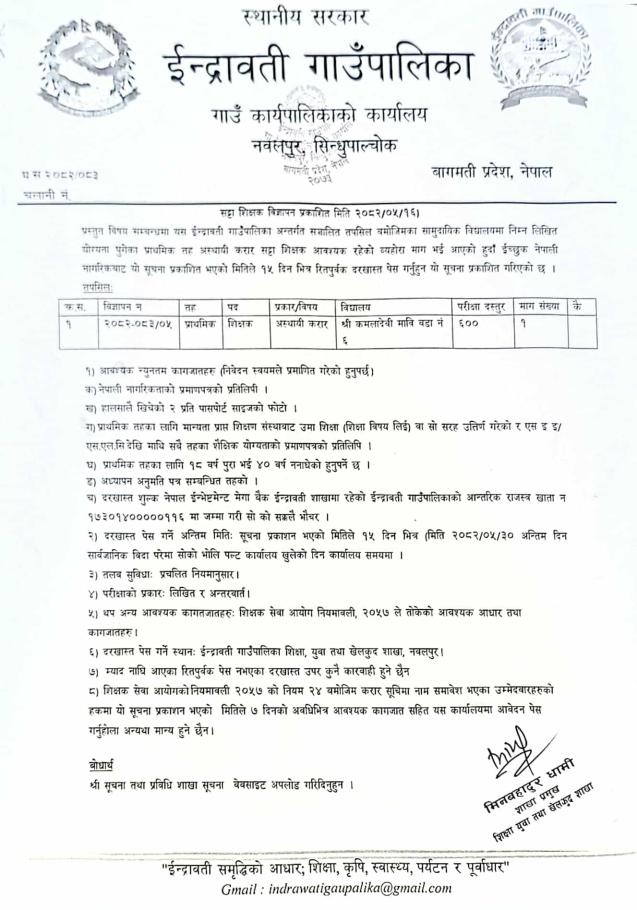 स्थानीय सरकार
ईन्द्रावती गाउँपालिका
गाउँ कार्यपालिकाको कार्यालय
नवलपुर, सिन्धुपाल्चोक
बागमती प्रदेश, नेपाल
२०७३
प स २०८२/०८३
चलानी नं.
सट्टा शिक्षक विज्ञापन प्रकाशित मिति २०८२/०५/१६)
प्रस्तुत विषय सम्बन्धमा यस ईन्द्रावती गाउँपालिका अन्तर्गत सञ्चालित तपसिल बमोजिमका सामुदायिक विद्यालयमा निम्न लिखित
योग्यता पुगेका प्राथमिक तह अस्थायी करार सट्टा शिक्षक आवश्यक रहेको व्यहोरा माग भई आएको हुदाँ ईच्छुक नेपाली
नागरिकबाट यो सूचना प्रकाशित भएको मितिले १५ दिन भित्र रितपुर्वक दरखास्त पेस गर्नुहुन यो सूचना प्रकाशित गरिएको छ ।
तपसिल:
क.स. विज्ञापन न तह पद प्रकार/विषय विद्यालय परीक्षा दस्तुर माग संख्या कै
१ २०८२-०८३/०५ प्राथमिक शिक्षक अस्थायी करार श्री कमलादेवी मावि वडा नं ६०० १
६
१) आवश्यक न्युनतम कागजातहरु (निवेदन स्वयमले प्रमाणित गरेको हुनुपर्छ)
क) नेपाली नागरिकताको प्रमाणपत्रको प्रतिलिपी ।
ख) हालसालै खिचेको २ प्रति पासपोर्ट साइजको फोटो ।
ग) प्राथमिक तहका लागि मान्यता प्राप्त शिक्षण संस्थाबाट उमा शिक्षा (शिक्षा विषय लिई) वा सो सरह उत्तिर्ण गरेको र एस इ इ/
एस.एल.सि देखि माथि सबै तहका शैक्षिक योग्यताको प्रमाणपत्रको प्रतिलिपि ।
घ) प्राथमिक तहका लागि १८ वर्ष पुरा भई ४० वर्ष ननाघेको हुनुपर्ने छ ।
ङ) अध्यापन अनुमति पत्र सम्बन्धित तहको ।
च) दरखास्त शुल्क नेपाल ईन्भेष्टमेण्ट मेगा बैंक ईन्द्रावती शाखामा रहेको ईन्द्रावती गाउँपालिकाको आन्तरिक राजस्व खाता न
१७३०१४०००००११६ मा जम्मा गरी सो को सक्कलै भौचर ।
२) दरखास्त पेस गर्ने अन्तिम मितिः सूचना प्रकाशन भएको मितिले १५ दिन भित्र (मिति २०८२/०५/३० अन्तिम दिन
सार्वजानिक बिदा परेमा सोको भोलि पल्ट कार्यालय खुलेको दिन कार्यालय समयमा ।
३) तलब सुविधाः प्रचलित नियमानुसार।
४) परीक्षाको प्रकारः लिखित र अन्तरवार्ता।
५) थप अन्य आवश्यक कागतजातहरुः शिक्षक सेवा आयोग नियमावली, २०५७ ले तोकेको आवश्यक आधार तथा
कागजातहरु।
६) दरखास्त पेस गर्ने स्थानः ईन्द्रावती गाउँपालिका शिक्षा, युवा तथा खेलकुद शाखा, नवलपुर।
७) म्याद नाघि आएका रितपुर्वक पेस नभएका दरखास्त उपर कुनै कारवाही हुने छैन
८) शिक्षक सेवा आयोगको नियमावली २०५७ को नियम २४ बमोजिम करार सूचिमा नाम समावेश भएका उम्मेदवारहरुको
हकमा यो सूचना प्रकाशन भएको मितिले ७ दिनको अवधिभित्र आवश्यक कागजात सहित यस कार्यालयमा आवेदन पेस
गर्नुहोला अन्यथा मान्य हुने छैन।
बोधार्थ
श्री सूचना तथा प्रविधि शाखा सूचना वेबसाइट अपलोड गरिदिनुहुन ।
मिनबहादुर धामी
शाखा प्रमुख
शिक्षा युवा तथा खेलकुद शाखा
"ईन्द्रावती समृद्धिको आधार; शिक्षा, कृषि, स्वास्थ्य, पर्यटन र पूर्वाधार"
Gmail : indrawatigaupalika@gmail.com